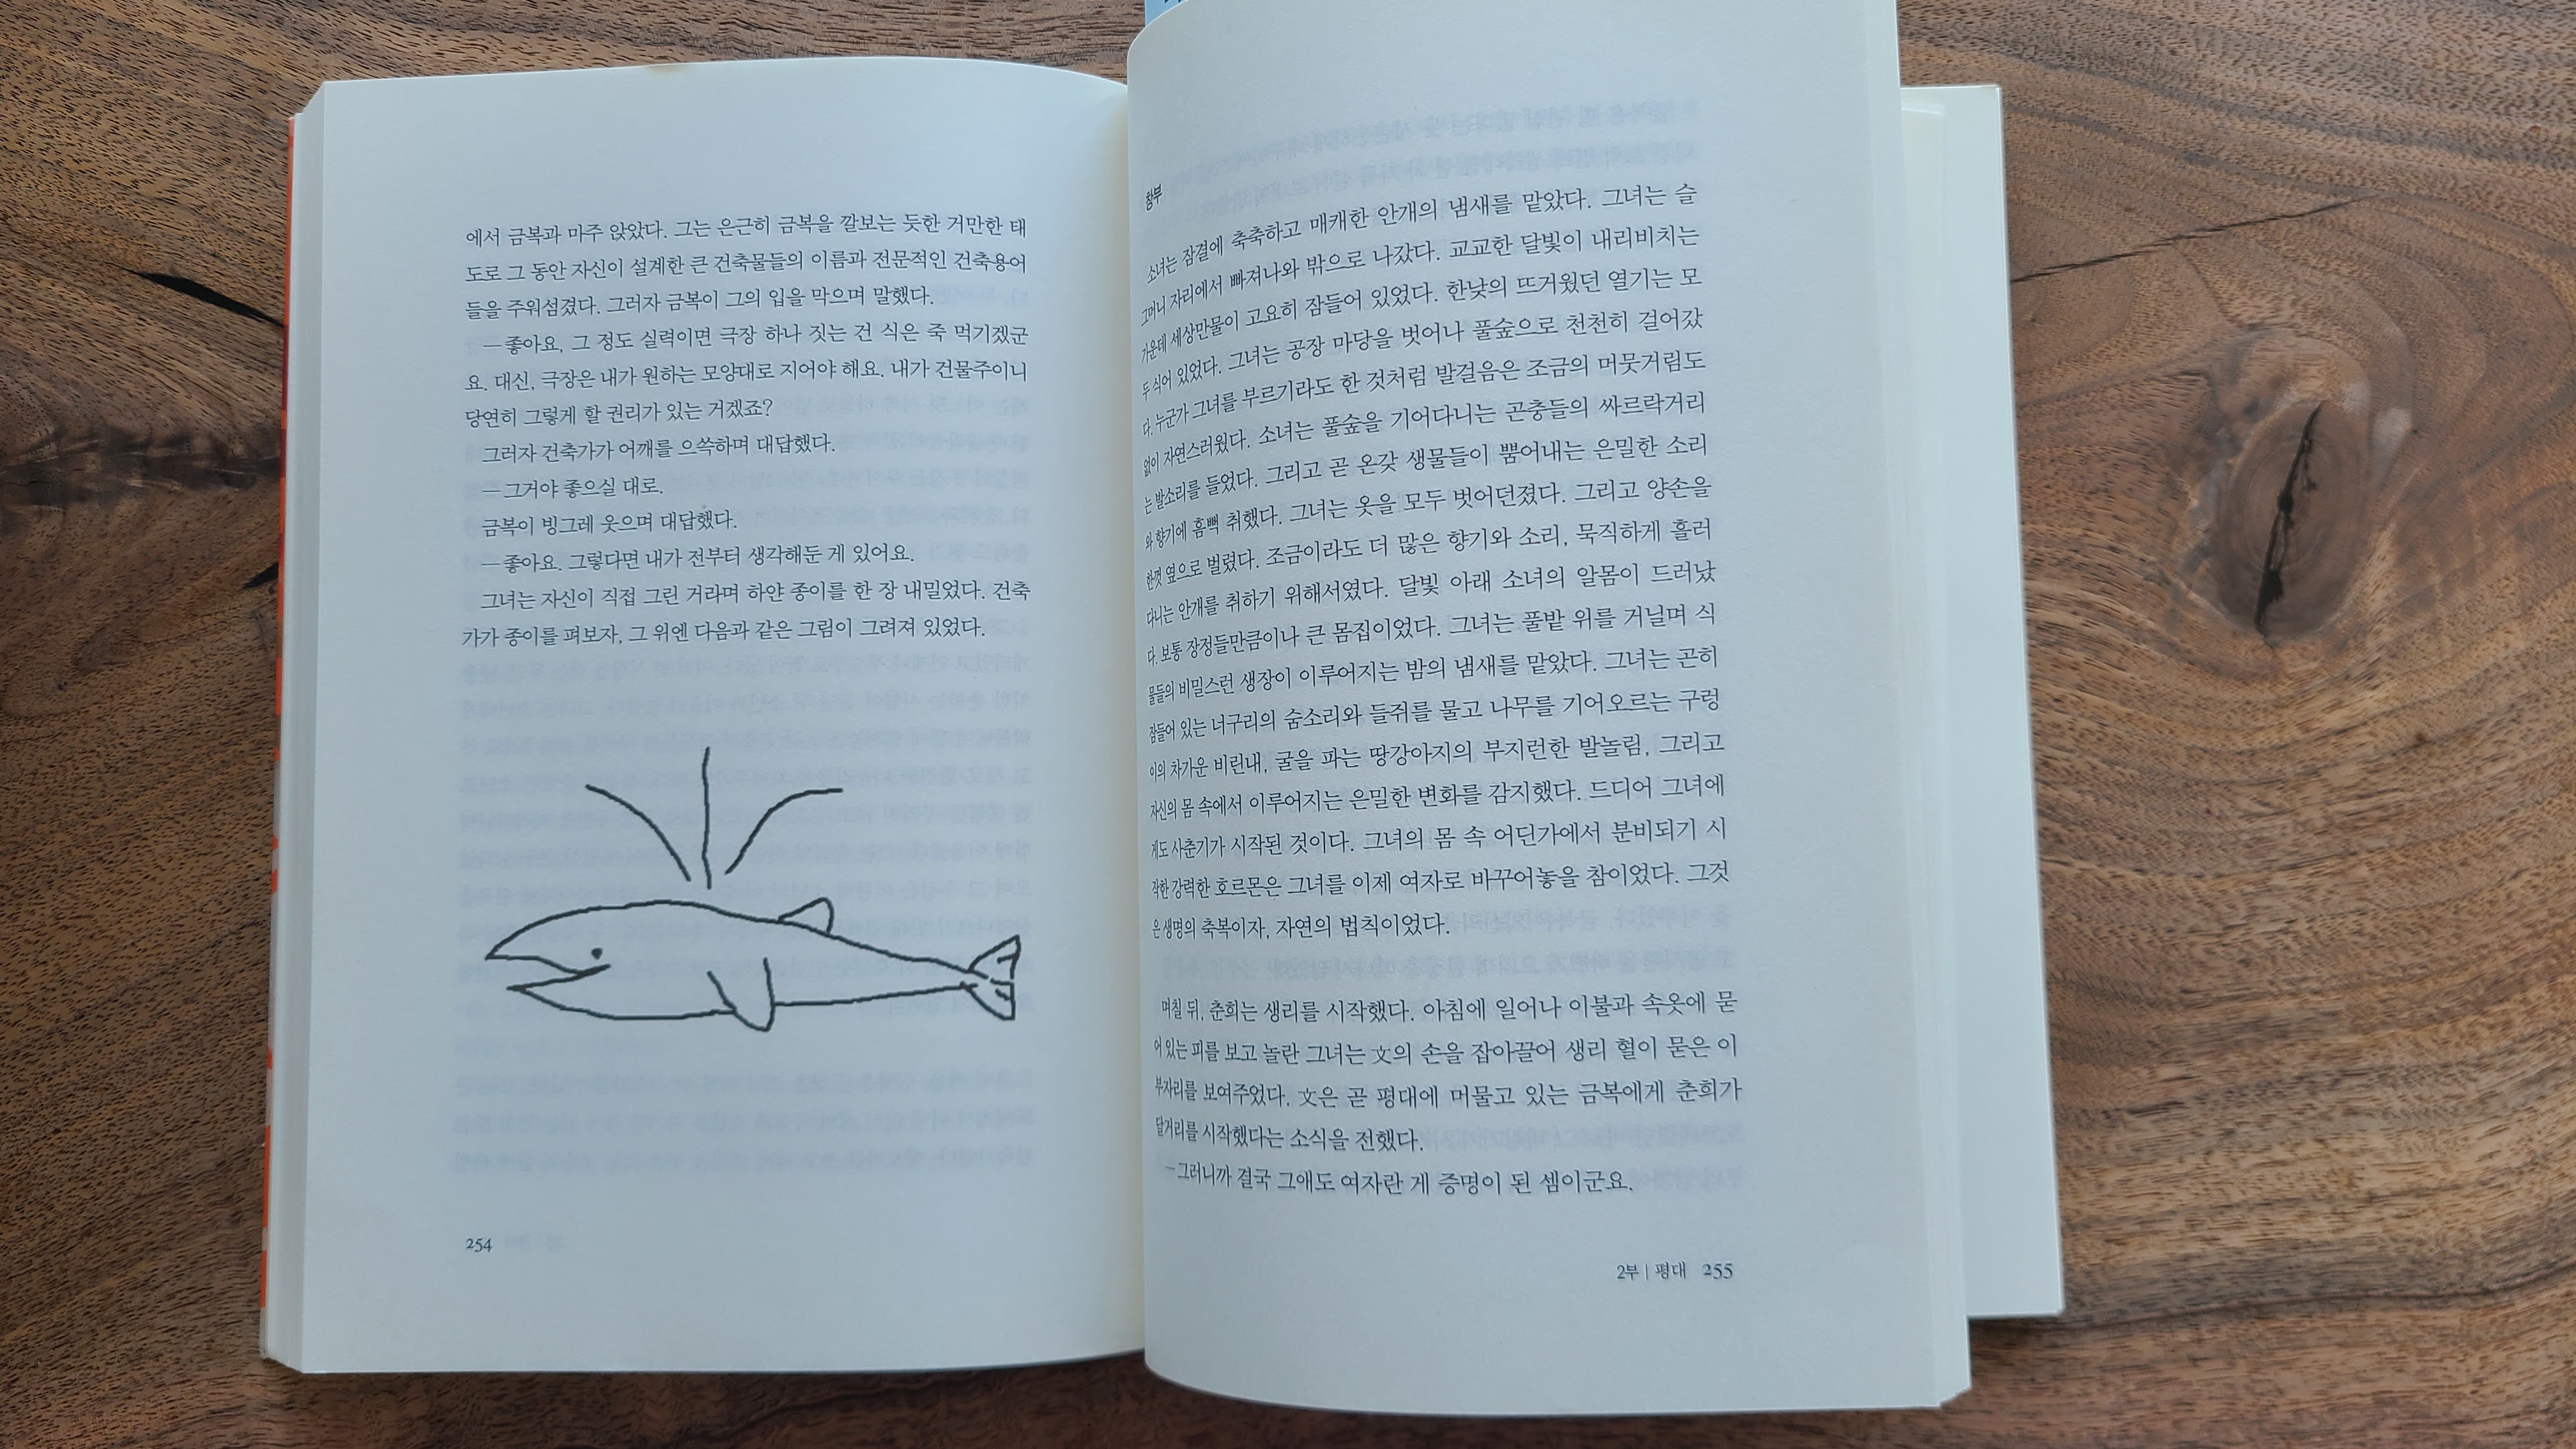 에서 금복과 마주 앉았다. 그는 은근히 금복을 깔보는 듯한 거만한 태
도로 그 동안 자신이 설계한 큰 건축물들의 이름과 전문적인 건축용어
들을 주워섬겼다. 그러자 금복이 그의 입을 막으며 말했다.
—좋아요, 그 정도 실력이면 극장 하나 짓는 건 식은 죽 먹기겠군
요. 대신, 극장은 내가 원하는 모양대로 지어야 해요. 내가 건물주이니
당연히 그렇게 할 권리가 있는 거겠죠?
그러자 건축가가 어깨를 으쓱하며 대답했다.
—그거야 좋으실 대로.
금복이 빙그레 웃으며 대답했다.
—좋아요. 그렇다면 내가 전부터 생각해둔 게 있어요.
그녀는 자신이 직접 그린 거라며 하얀 종이를 한 장 내밀었다. 건축
가가 종이를 펴보자, 그 위엔 다음과 같은 그림이 그려져 있었다.
254
창부
소녀는 잠결에 축축하고 매캐한 안개의 냄새를 맡았다. 그녀는 슬
그머니 자리에서 빠져나와 밖으로 나갔다. 교교한 달빛이 내리비치는
가운데 세상만물이 고요히 잠들어 있었다. 한낮의 뜨거웠던 열기는 모
두 식어 있었다. 그녀는 공장 마당을 벗어나 풀숲으로 천천히 걸어갔
다. 누군가 그녀를 부르기라도 한 것처럼 발걸음은 조금의 머뭇거림도
없이 자연스러웠다. 소녀는 풀숲을 기어다니는 곤충들의 싸르락거리
는 발소리를 들었다. 그리고 곧 온갖 생물들이 뿜어내는 은밀한 소리
와 향기에 흠뻑 취했다. 그녀는 옷을 모두 벗어던졌다. 그리고 양손을
한껏 옆으로 벌렸다. 조금이라도 더 많은 향기와 소리, 묵직하게 흘러
다니는 안개를 취하기 위해서였다. 달빛 아래 소녀의 알몸이 드러났
다. 보통 장정들만큼이나 큰 몸집이었다. 그녀는 풀밭 위를 거닐며 식
물들의 비밀스런 생장이 이루어지는 밤의 냄새를 맡았다. 그녀는 곤히
잠들어 있는 너구리의 숨소리와 들쥐를 물고 나무를 기어오르는 구렁
이의 차가운 비린내, 굴을 파는 땅강아지의 부지런한 발놀림, 그리고
자신의 몸 속에서 이루어지는 은밀한 변화를 감지했다. 드디어 그녀에
게도 사춘기가 시작된 것이다. 그녀의 몸 속 어딘가에서 분비되기 시
작한 강력한 호르몬은 그녀를 이제 여자로 바꾸어놓을 참이었다. 그것
은 생명의 축복이자, 자연의 법칙이었다.
며칠 뒤, 춘희는 생리를 시작했다. 아침에 일어나 이불과 속옷에 묻
어 있는 피를 보고 놀란 그녀는 文의 손을 잡아끌어 생리 혈이 묻은 이
부자리를 보여주었다. 文은 곧 평대에 머물고 있는 금복에게 춘희가
달거리를 시작했다는 소식을 전했다.
—그러니까 결국 그애도 여자란 게 증명이 된 셈이군요.
2부 | 평대 255